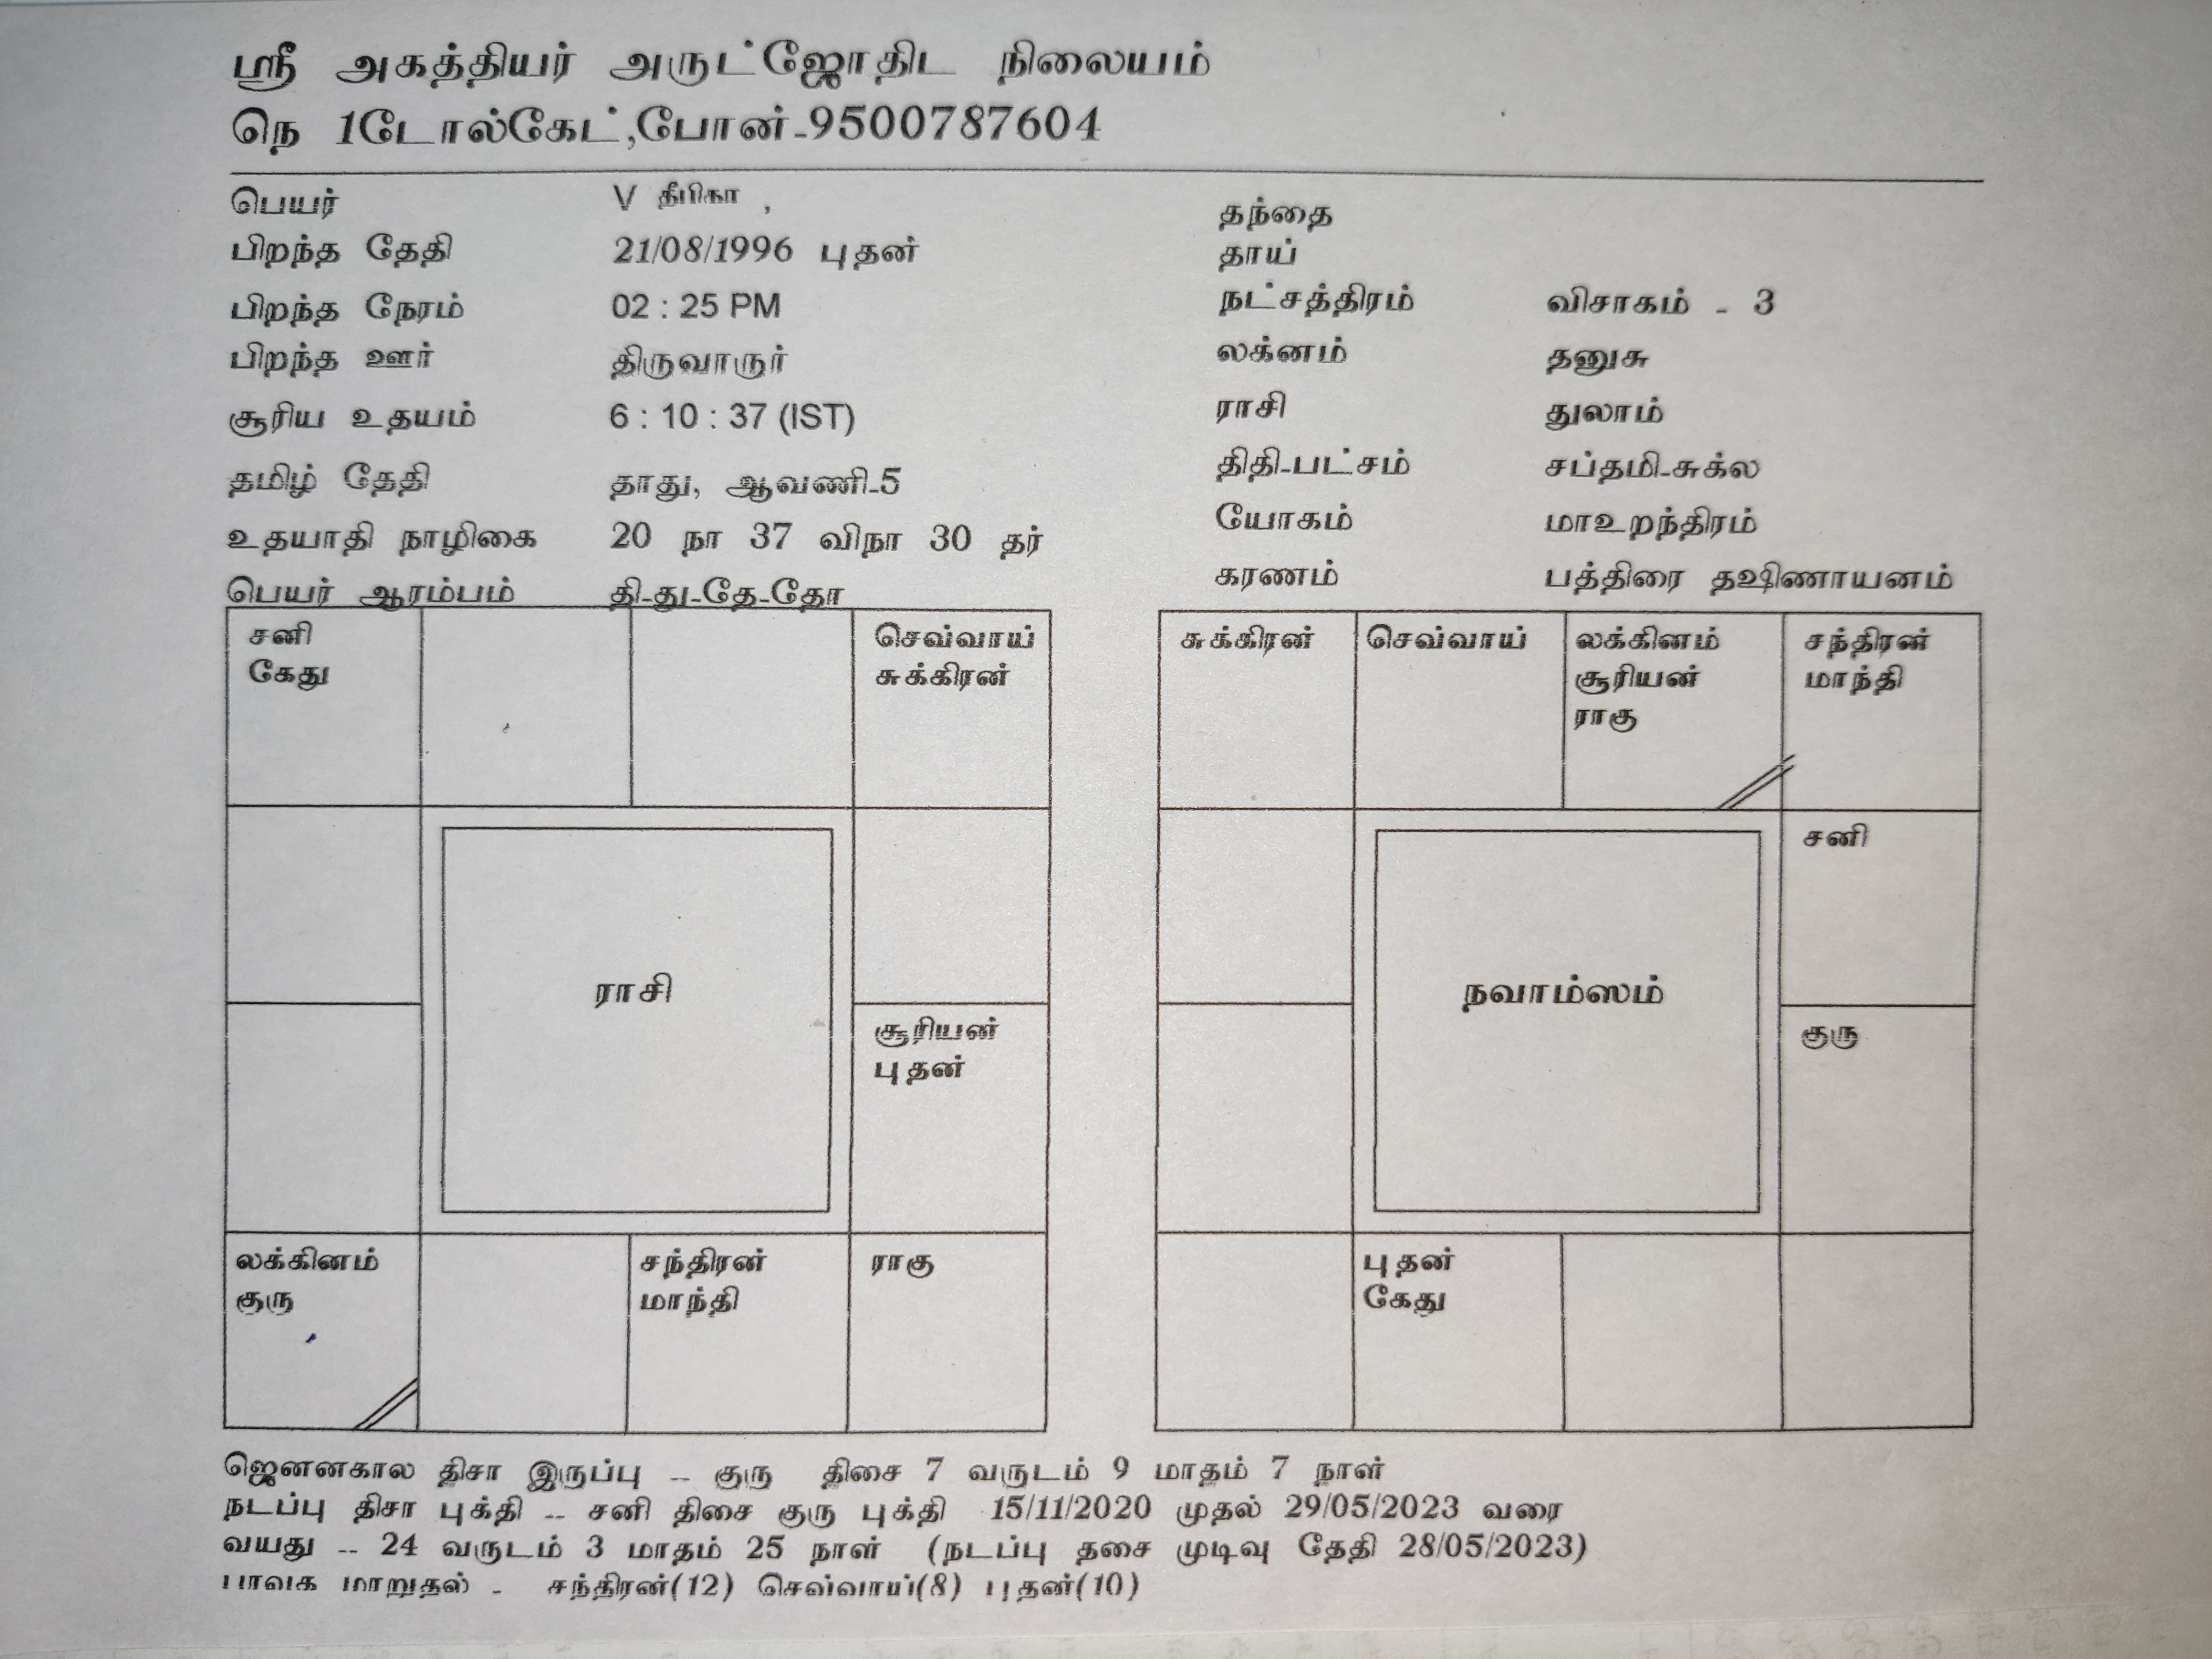 ஸ்ரீ அகத்தியர் அருட்ஜோதிட நிலையம்
நெ 1டோல்கேட்,போன்-9500787604
பெயர் V தீபிகா ,
தந்தை
பிறந்த தேதி 21/08/1996 புதன்
தாய்
பிறந்த நேரம் 02 : 25 PM
நட்சத்திரம் விசாகம் - 3
பிறந்த ஊர் திருவாரூர்
லக்னம் தனுசு
சூரிய உதயம் 6 : 10 : 37 (IST)
ராசி துலாம்
தமிழ் தேதி தாது, ஆவணி-5
திதி-பட்சம் சப்தமி-சுக்ல
உதயாதி நாழிகை 20 நா 37 விநா 30 தர்
யோகம் மாஉறந்திரம்
பெயர் ஆரம்பம் தி-து-தே-தோ
கரணம் பத்திரை தஷிணாயனம்
சனி
கேது
செவ்வாய்
சுக்கிரன்
ராசி
சூரியன்
புதன்
லக்கினம்
குரு
சந்திரன்
மாந்தி
ராகு
சுக்கிரன்
செவ்வாய்
லக்கினம்
சூரியன்
ராகு
சந்திரன்
மாந்தி
சனி
நவாம்ஸம்
குரு
புதன்
கேது
ஜெனனகால திசா இருப்பு -- குரு திசை 7 வருடம் 9 மாதம் 7 நாள்
நடப்பு திசா புக்தி -- சனி திசை குரு புக்தி 15/11/2020 முதல் 29/05/2023 வரை
வயது -- 24 வருடம் 3 மாதம் 25 நாள் (நடப்பு தசை முடிவு தேதி 28/05/2023)
பாவக மாறுதல் - சந்திரன்(12) செவ்வாய்(8) புதன்(10)